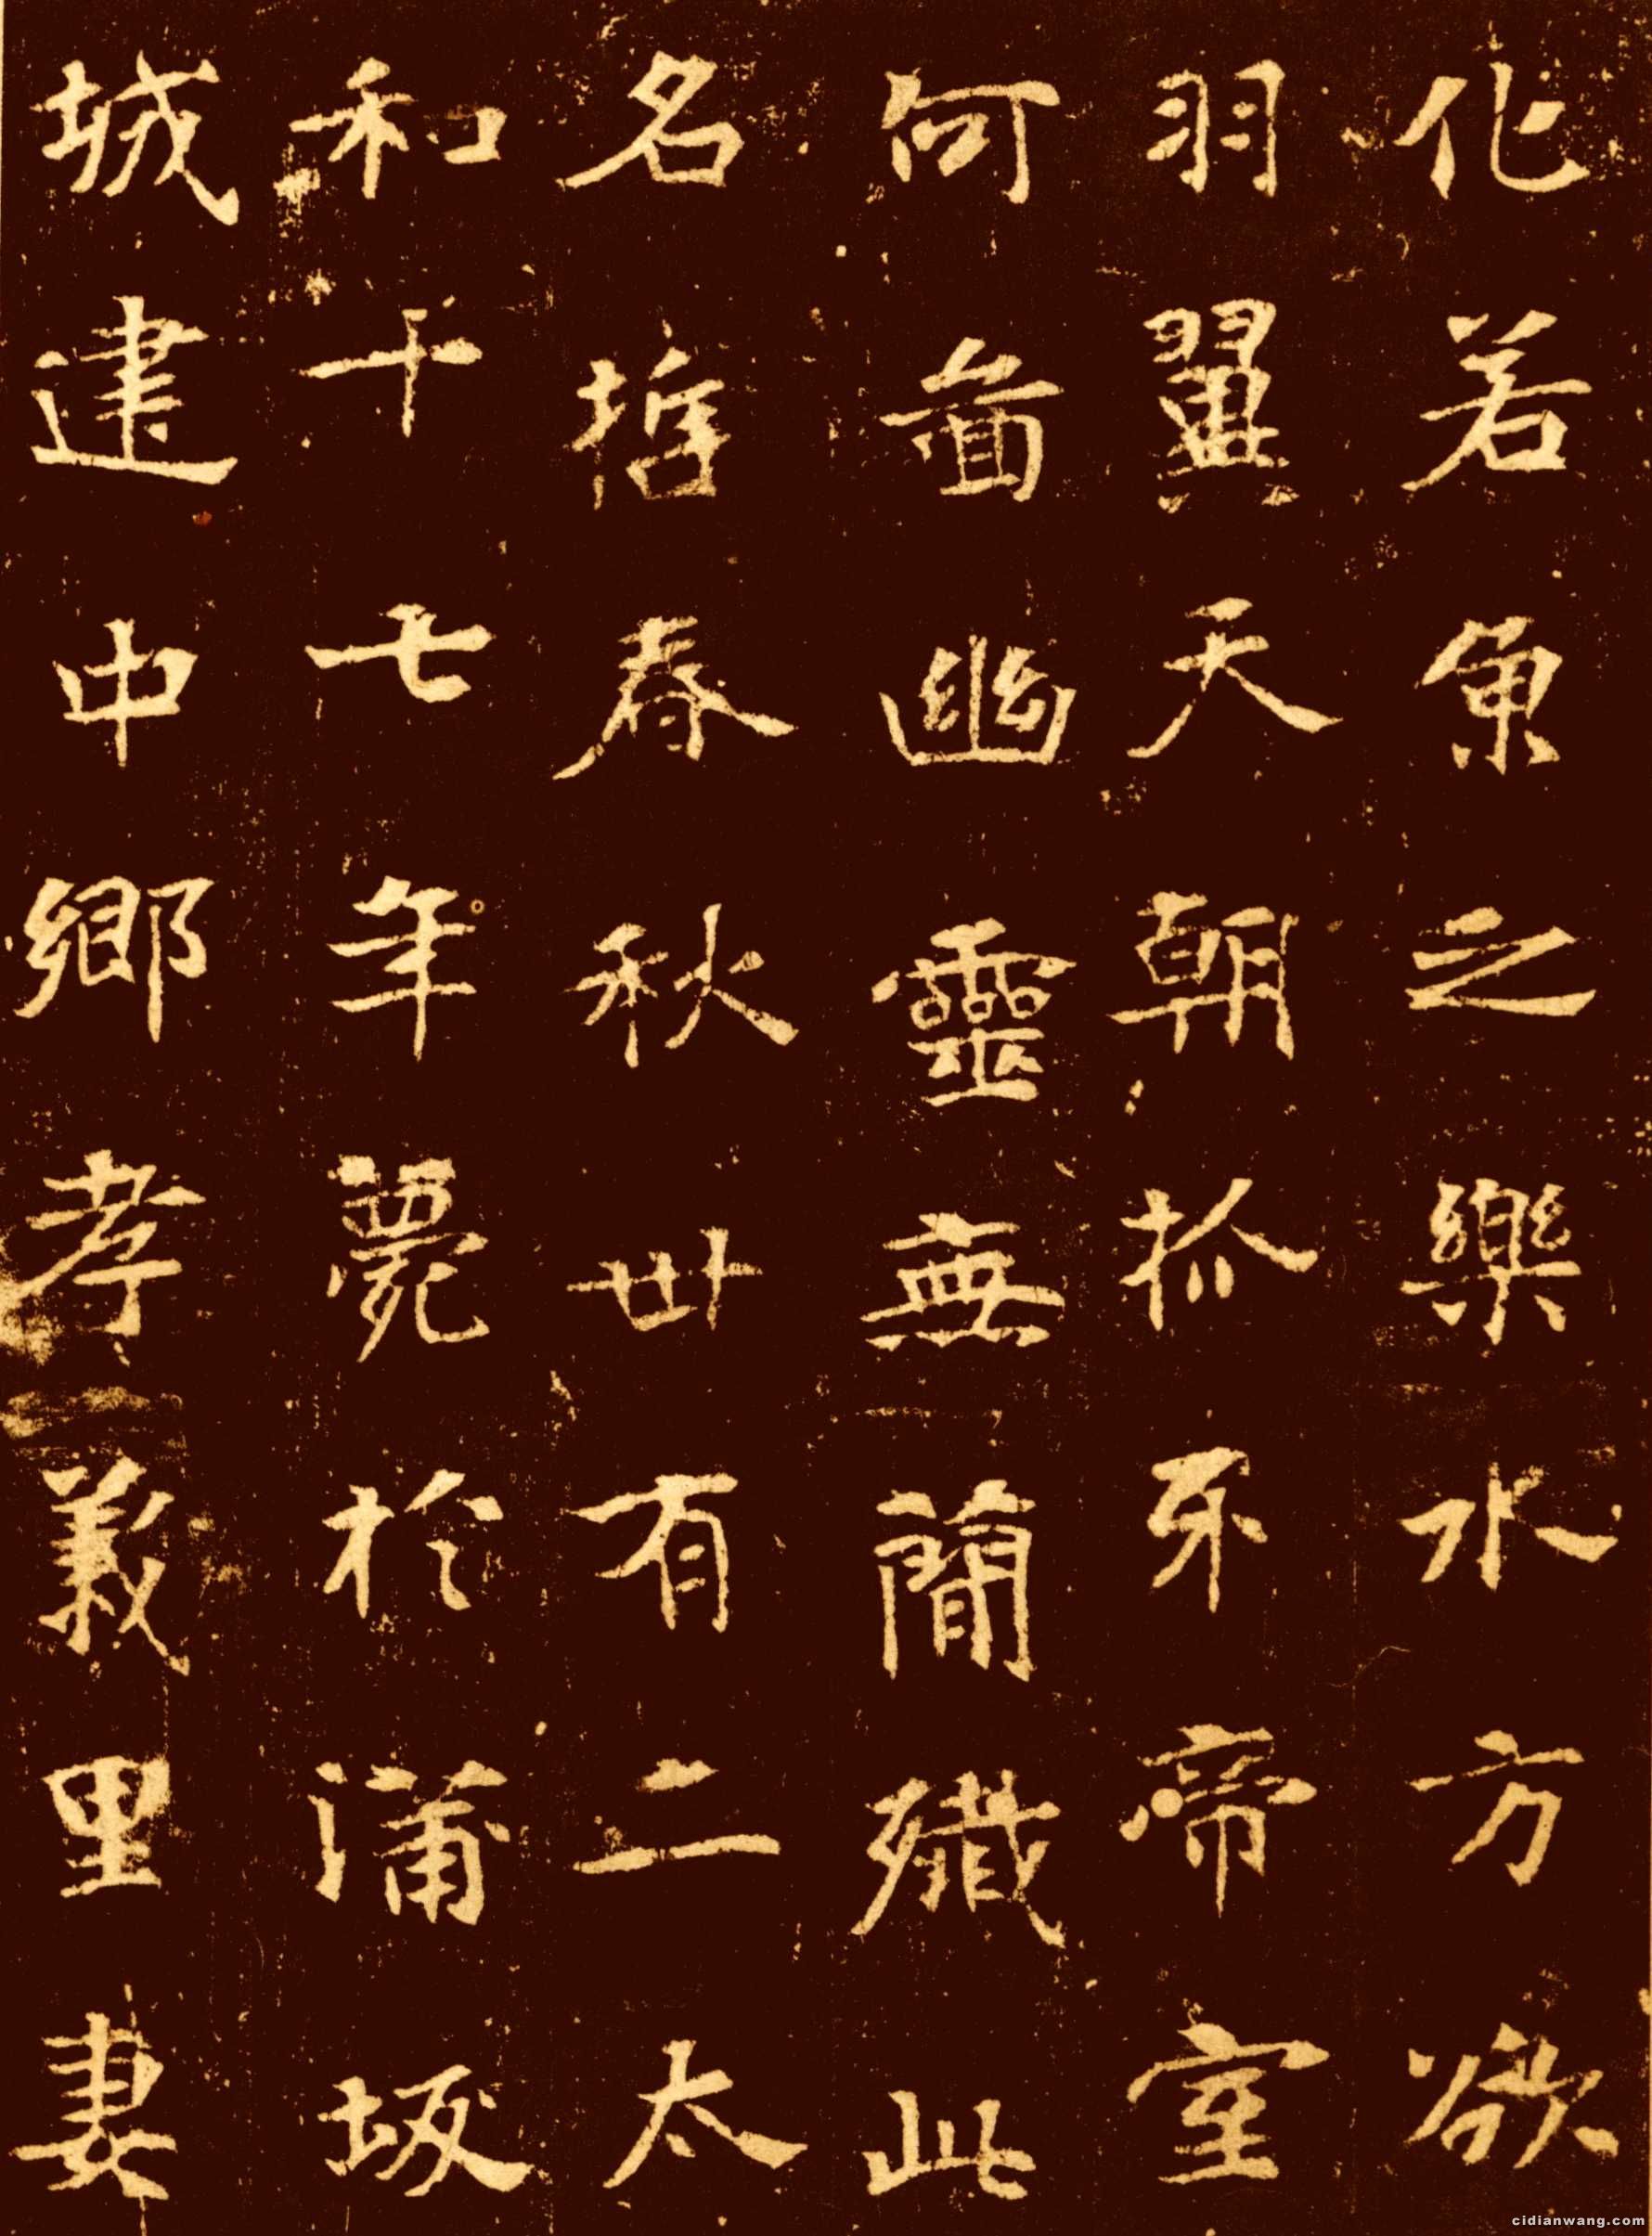 化若魚之樂水方欲
羽翼天朝抓牙帝室
何啚幽靈無簡殲此
名哲春秋卅有二太
和十七年薨於蒲坂
城建中鄉孝義里妻
cidianwang.com